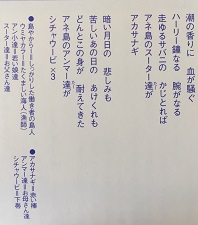 潮の香りに　血が騒ぐ
ハーリー鐘なる　腕がなる
走ゆるサバニの　かじとれば
アネ島のスーター達が
アカサナギ
暗い月日の　悲しみも
苦しいあの日の　あけくれも
どんとこの身が　耐えてきた
アネ島のアンマー達が
シチャウービ×3
●島やから＝しっかりした働き者の島人
ウミヤカラー＝たくましい海人（漁師）
アン小達＝若い娘達
スーター達＝お父さん達
●アカサナギ＝赤い褌
アンマー達＝お母さん達
シチャウービ＝下帯